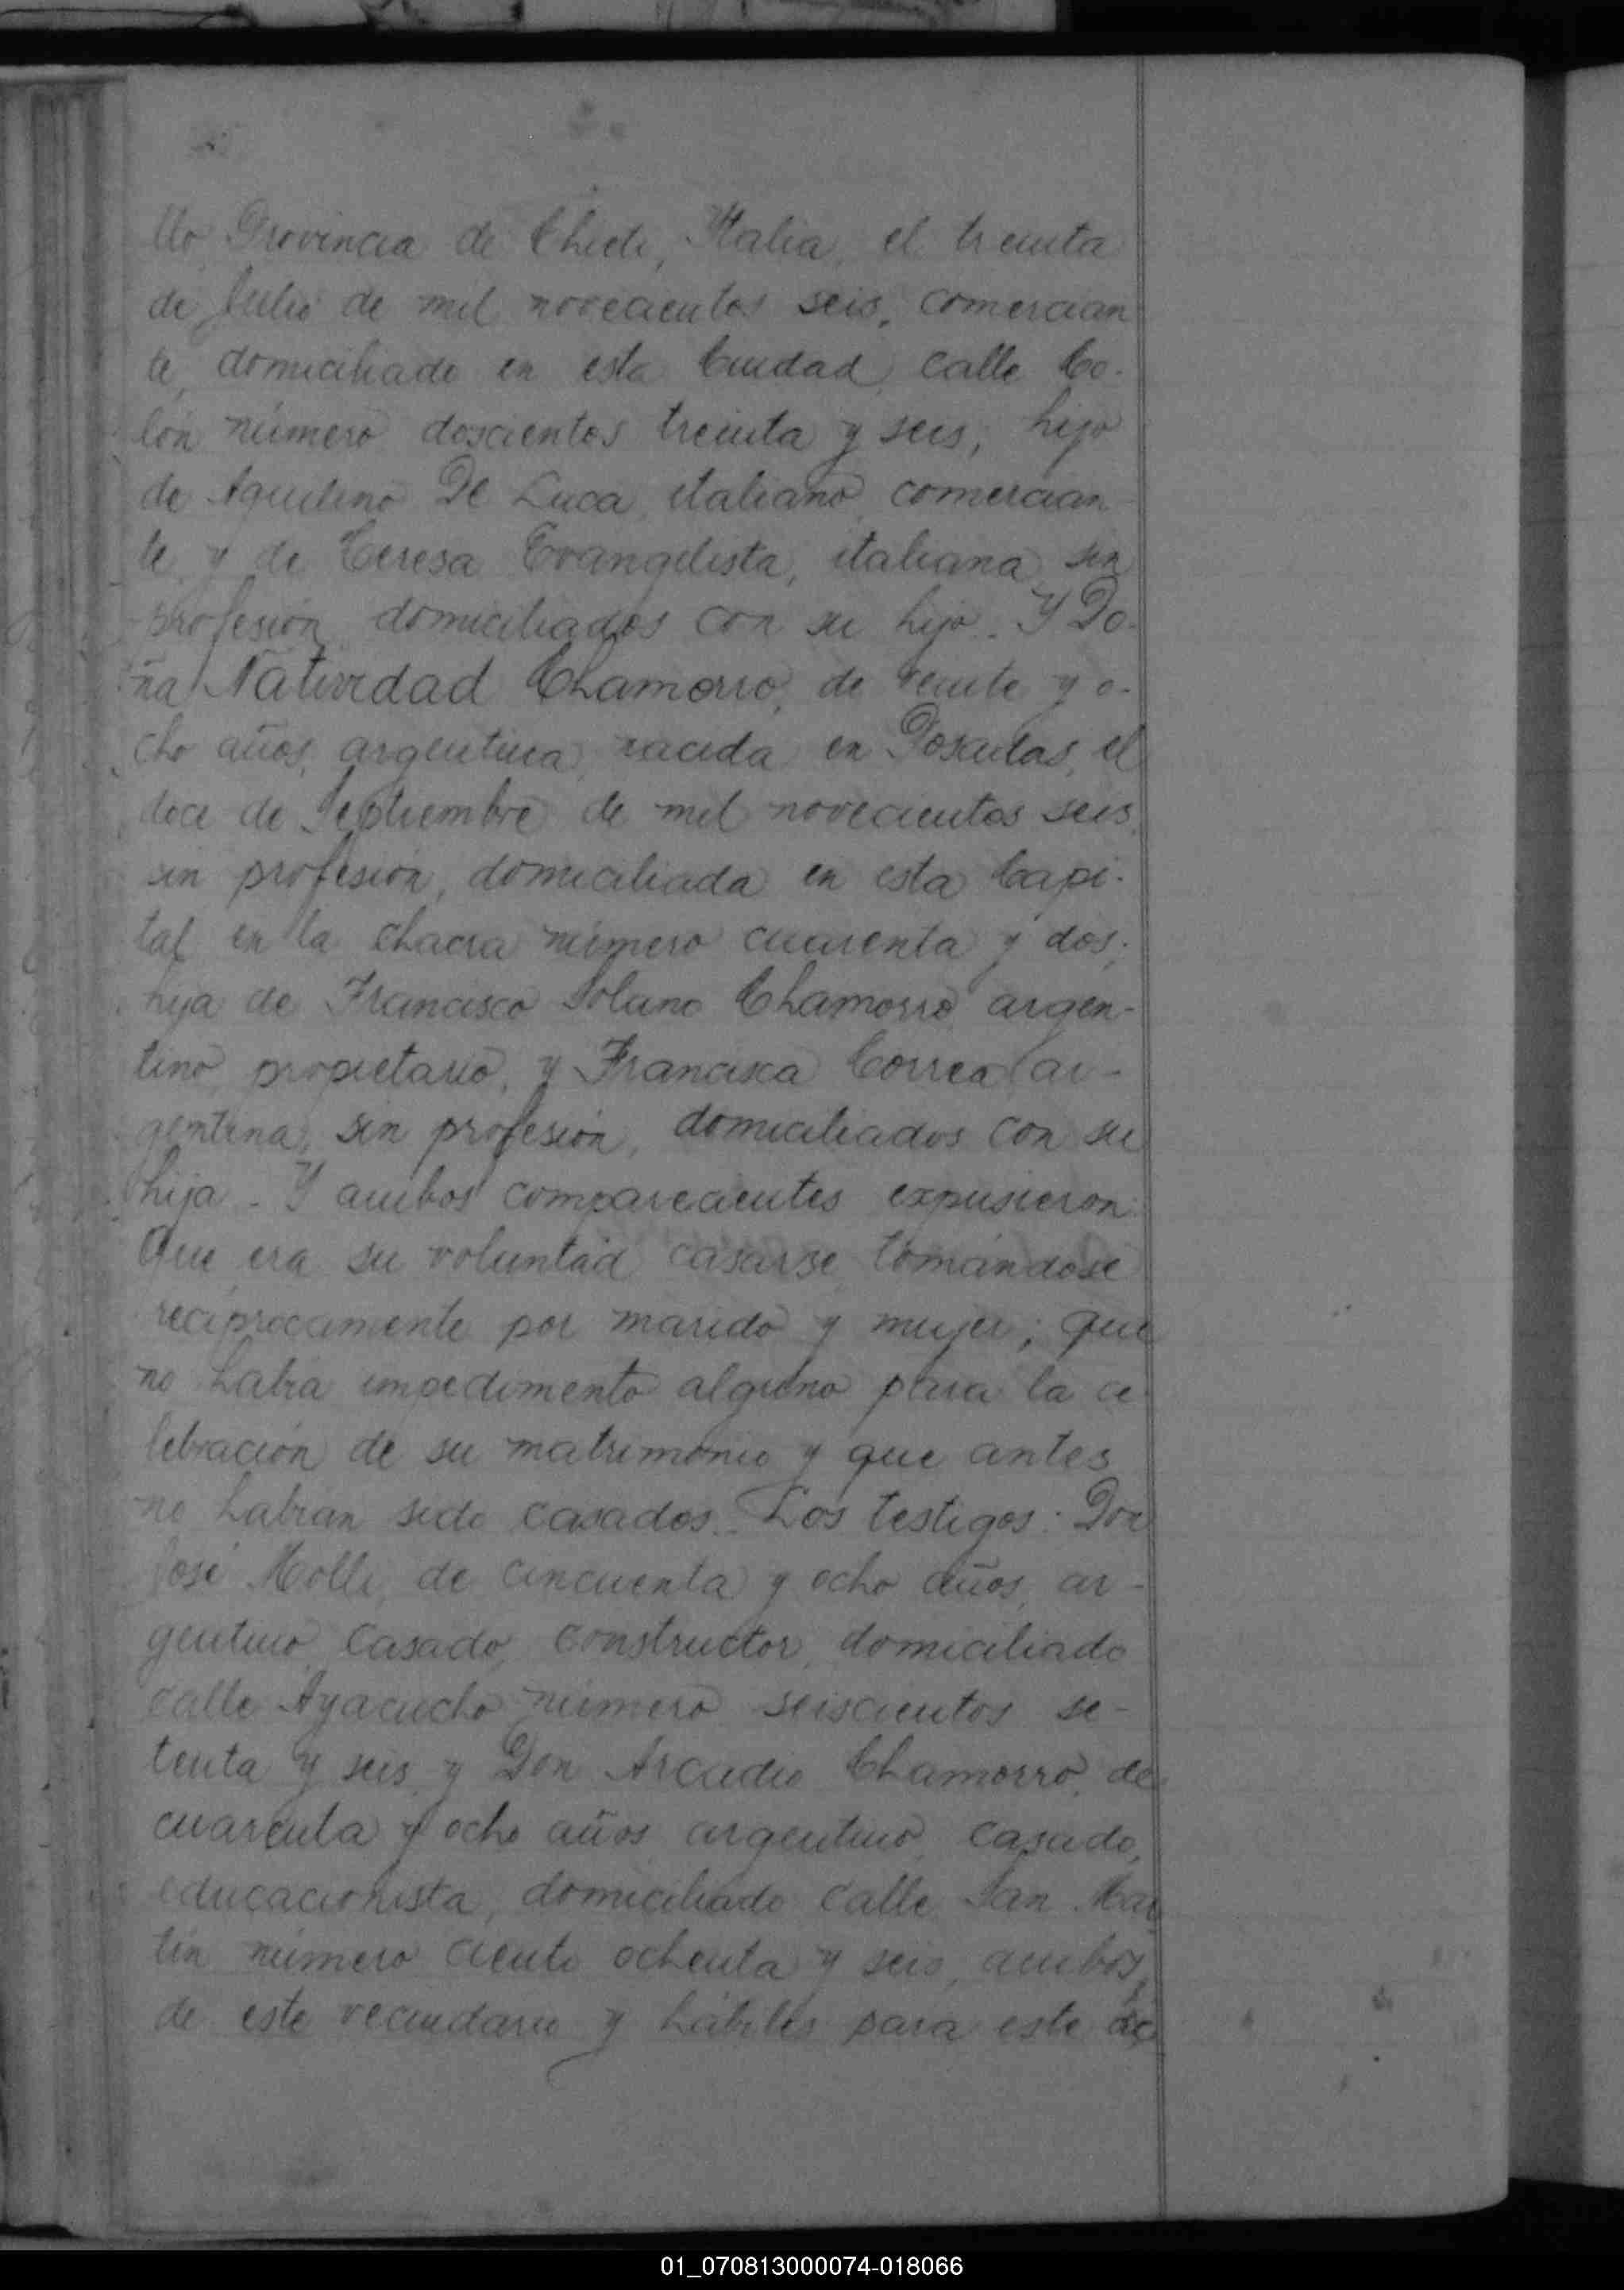 llo, Provincia de Chieti, Italia, el treinta
de Julio de mil novecientos seis, comercian
te, domiciliado en esta Ciudad, calle Co-
lón número doscientos treinta y seis, hijo
de Aquilino De Luca, italiano, comercian
te, y de Teresa Evangelista, italiana, sin
profesión, domiciliados con su hijo. Y Do-
ña Natividad Chamorro, de veinte y o-
cho años, argentina, nacida en Posadas, el
doce de Septiembre de mil novecientos seis,
sin profesión, domiciliada en esta Capi-
tal en la chacra número cuarenta y dos;
hija de Francisco Solano Chamorro argen-
tino, propietario, y Francisca Correa, ar-
gentina, sin profesión, domiciliados con su
hija. - Y ambos comparecientes expusieron:
Que era su voluntad casarse tomándose
recíprocamente por marido y mujer; que
no había impedimento alguno para la ce
lebración de su matrimonio y que antes
no habían sido casados. Los testigos: Don
José Molli, de cincuenta y ocho años, ar-
gentino, casado, constructor, domiciliado
calle Ayacucho número seiscientos se-
tenta y seis, y Don Arcadio Chamorro, de
cuarenta y ocho años, argentino, casado,
educacionista, domiciliado calle San Mar
tín número ciento ochenta y seis, ambos
de este vecindario y hábiles para este ac
01_070813000074-018066